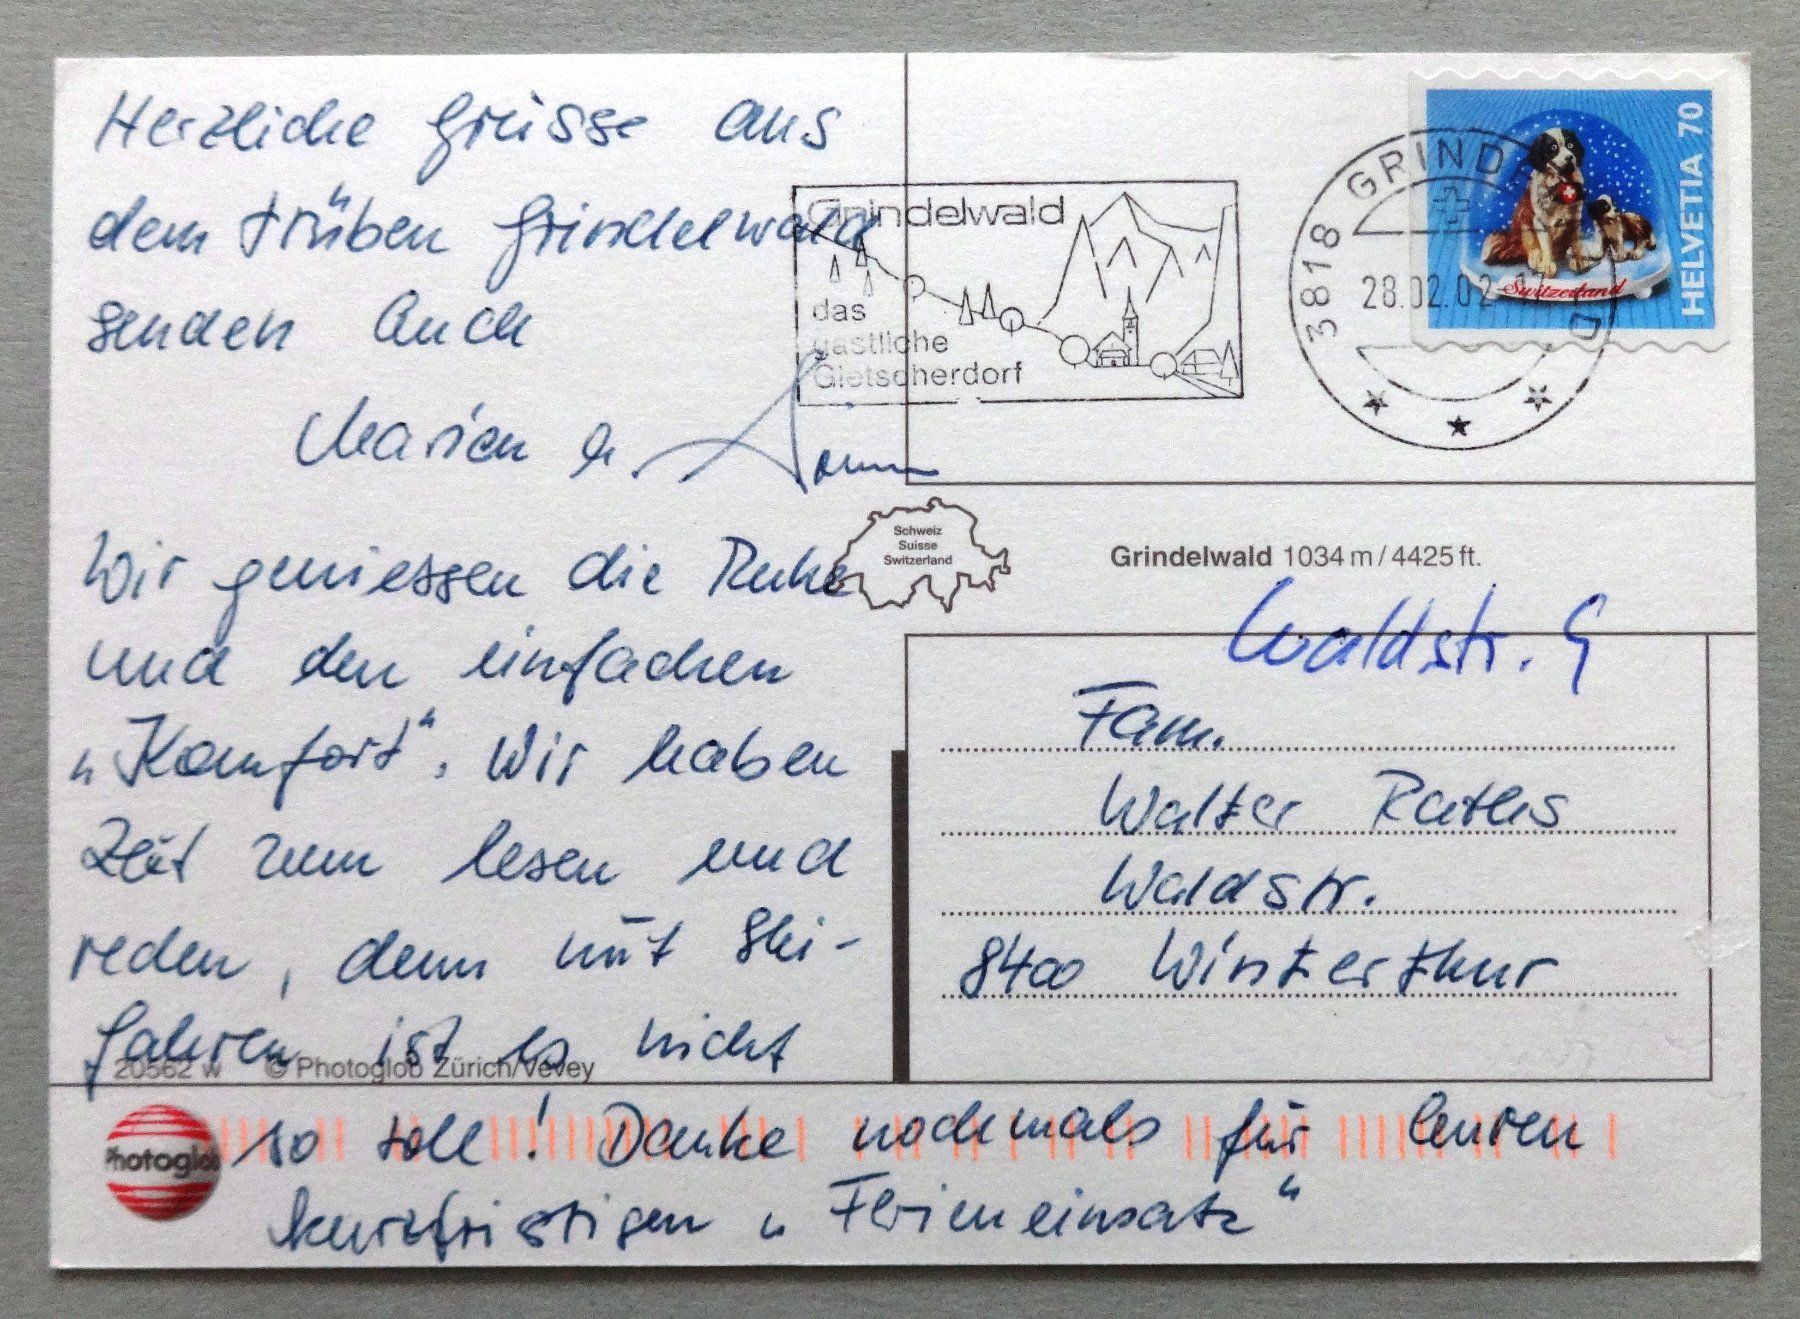 Herzliche Grüsse aus
dem trüben Grindelwald
senden Euch
Wir geniessen die Ruhe
und den einfachen
„Komfort". Wir haben
Zeit zum lesen und
reden, denn mit Ski-
fahren ist es nicht
so toll! Danke nochmals für Euren
kurzfristigen „Ferieneinsatz"
Grindelwald
das
gastliche
Gletscherdorf
3818 GRIND
28.02.02
HELVETIA 70
Switzerland
Schweiz
Suisse
Switzerland
Grindelwald 1034 m / 4425 ft.
Waldstr. 9
Fam.
Walter
Waldstr.
8400 Winterthur
20562 w © Photoglob Zürich/Vevey
Photoglob